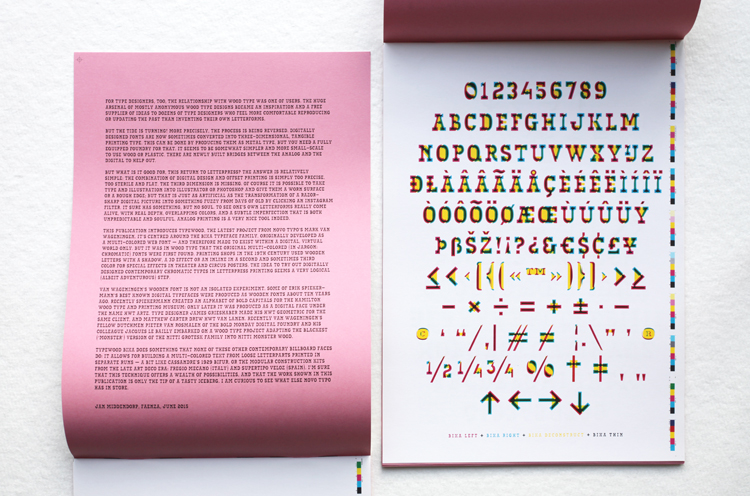 FOR TYPE DESIGNERS, TOO, THE RELATIONSHIP WITH WOOD TYPE WAS ONE OF USERS. THE HUGE
ARSENAL OF MOSTLY ANONYMOUS WOOD TYPE DESIGNS BECAME AN INSPIRATION AND A FREE
SUPPLIER OF IDEAS TO DOZENS OF TYPE DESIGNERS WHO FEEL MORE COMFORTABLE REPRODUCING
OR UPDATING THE PAST THAN INVENTING THEIR OWN LETTERFORMS.
BUT THE TIDE IS TURNING! MORE PRECISELY, THE PROCESS IS BEING REVERSED. DIGITALLY
DESIGNED FONTS ARE NOW SOMETIMES CONVERTED INTO THREE-DIMENSIONAL, TANGIBLE
PRINTING TYPE. THIS CAN BE DONE BY PRODUCING THEM AS METAL TYPE, BUT YOU NEED A FULLY
EQUIPPED FOUNDRY FOR THAT. IT SEEMS TO BE SOMEWHAT SIMPLER AND MORE SMALL-SCALE
TO USE WOOD OR PLASTIC. THERE ARE NEWLY BUILT BRIDGES BETWEEN THE ANALOG AND THE
DIGITAL TO HELP OUT.
BUT WHAT IS IT GOOD FOR, THIS RETURN TO LETTERPRESS? THE ANSWER IS RELATIVELY
SIMPLE: THE COMBINATION OF DIGITAL DESIGN AND OFFSET PRINTING IS SIMPLY TOO PRECISE,
TOO STERILE AND FLAT. THE THIRD DIMENSION IS MISSING. OF COURSE IT IS POSSIBLE TO TAKE
TYPE AND ILLUSTRATION INTO ILLUSTRATOR OR PHOTOSHOP AND GIVE THEM A WORN SURFACE
OR A ROUGH EDGE; BUT THAT IS JUST AS ARTIFICIAL AS THE TRANSFORMATION OF A RAZOR-
SHARP DIGITAL PICTURE INTO SOMETHING FUZZY FROM DAYS OF OLD BY CLICKING AN INSTAGRAM
FILTER. IT SURE HAS SOMETHING, BUT NO SOUL. TO SEE ONE'S OWN LETTERFORMS REALLY COME
ALIVE, WITH REAL DEPTH, OVERLAPPING COLORS, AND A SUBTLE IMPERFECTION THAT IS BOTH
UNPREDICTABLE AND SOULFUL, ANALOG PRINTING IS A VERY NICE TOOL INDEED.
THIS PUBLICATION INTRODUCES TYPEWOOD, THE LATEST PROJECT FROM NOVO TYPO'S MARK VAN
WAGENINGEN. IT'S CENTRED ABOUT THE BIXA TYPEFACE FAMILY, ORIGINALLY DEVELOPED AS
A MULTI-COLORED WEB FONT — AND THEREFORE MADE TO EXIST WITHIN A DIGITAL VIRTUAL
WORLD ONLY. BUT IT WAS IN WOOD TYPE THAT THE ORIGINAL MULTI-COLORED (IN JARGON:
CHROMATIC) FONTS WERE FIRST FOUND. PRINTING SHOPS IN THE 19TH CENTURY USED WOODEN
LETTERS WITH A SHADOW, A 3D EFFECT OR AN INLINE IN A SECOND AND SOMETIMES THIRD
COLOR FOR SPECIAL EFFECTS IN THEATER AND CIRCUS POSTERS. THE IDEA TO TRY OUT DIGITALLY
DESIGNED CONTEMPORARY CHROMATIC TYPES IN LETTERPRESS PRINTING SEEMS A VERY LOGICAL
(ALBEIT ADVENTUROUS) STEP.
VAN WAGENINGEN'S WOODEN FONT IS NOT AN ISOLATED EXPERIMENT. SOME OF ERIK SPIEKER-
MANN'S BEST KNOWN DIGITAL TYPEFACES WERE PRODUCED AS WOODEN FONTS ABOUT TEN YEARS
AGO. RECENTLY SPIEKERMANN CREATED AN ALPHABET OF BOLD CAPITALS FOR THE HAMILTON
WOOD TYPE AND PRINTING MUSEUM; ONLY LATER IT WAS PRODUCED AS A DIGITAL FACE UNDER
THE NAME HWT ARTZ. TYPE DESIGNER JAMES GRIESHABER MADE HIS HWT GEOMETRIC FOR THE
SAME CLIENT, AND MATTHEW CARTER DREW HWT VAN LANEN. RECENTLY VAN WAGENINGEN'S
FELLOW DUTCHMEN PIETER VAN ROSMALEN OF THE BOLD MONDAY DIGITAL FOUNDRY AND HIS
COLLEAGUE JACQUES LE BAILLY EMBARKED ON A WOOD TYPE PROJECT ADAPTING THE BLACKEST
('MONSTER') VERSION OF THE NITTI GROTESK FAMILY INTO NITTI MONSTER WOOD.
TYPEWOOD BIXA DOES SOMETHING THAT NONE OF THESE OTHER CONTEMPORARY BILLBOARD FACES
DO: IT ALLOWS FOR BUILDING A MULTI-COLORED TEXT FROM LOOSE LETTERPARTS PRINTED IN
SEPARATE RUNS — A BIT LIKE CASSANDRE'S 1929 BIFUR, OR THE MODULAR CONSTRUCTION KITS
FROM THE LATE ART DECO ERA: FREGIO MECANO (ITALY) AND SUPERTIPO VELOZ (SPAIN). I'M SURE
THAT THIS TECHNIQUE OFFERS A WEALTH OF POSSIBILITIES, AND THAT THE WORK SHOWN IN THIS
PUBLICATION IS ONLY THE TIP OF A TASTY ICEBERG. I AM CURIOUS TO SEE WHAT ELSE NOVO TYPO
HAS IN STORE.
JAN MIDDENDORP, FAENZA, JUNE 2015
0123456789
ABCDEFGHIJKLM
NOPQRSTUVWXYZ
ÐŁÀÂÃÄÅÇÈÉÊËÌÍÎÏ
ÒÓÔÕÖØÆŒÙÚÛÜÝ
ÞβŠŽ!¡?¿&€$₵£¥
<< <[{(« ™ »)}]> >>
- × ÷ = + ± -
© ' "/,|≠≠ ¦\:.,' ®
1/2 1/4 3/4 % ‡ * „ "
↑←→↓
BIXA LEFT • BIXA RIGHT • BIXA BIXA THIN